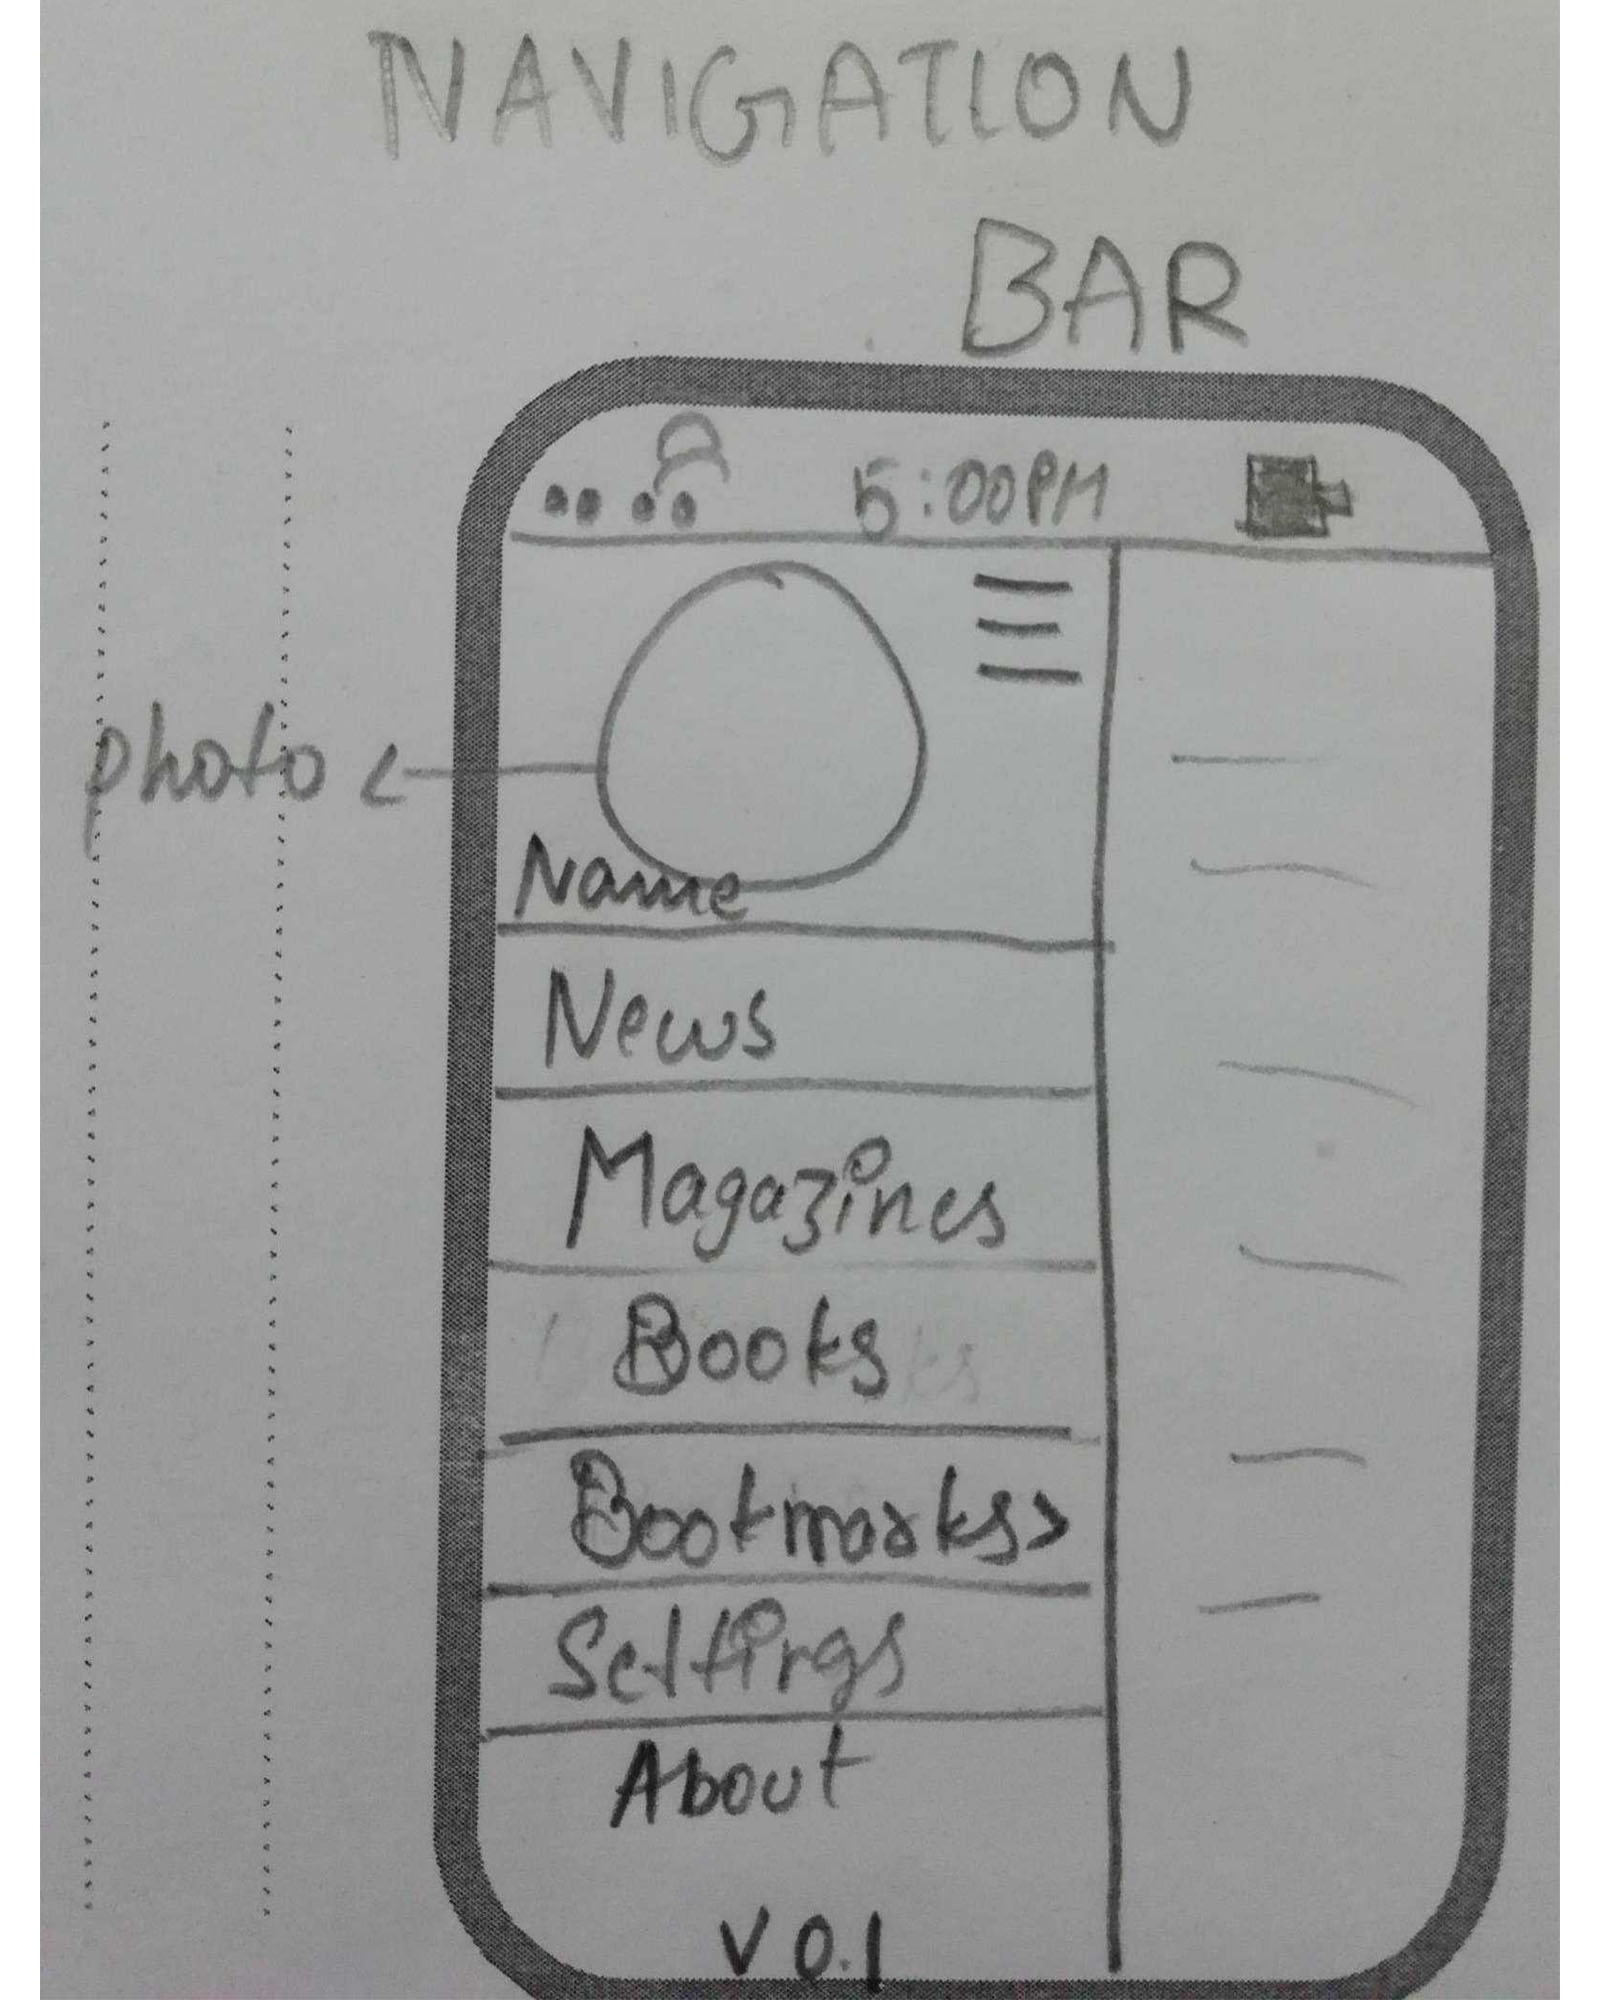 NAVIGATION
BAR
5:00PM
photo
Name
News
Magazines
Books
Bookmarks>
Settings
About
V 0.1